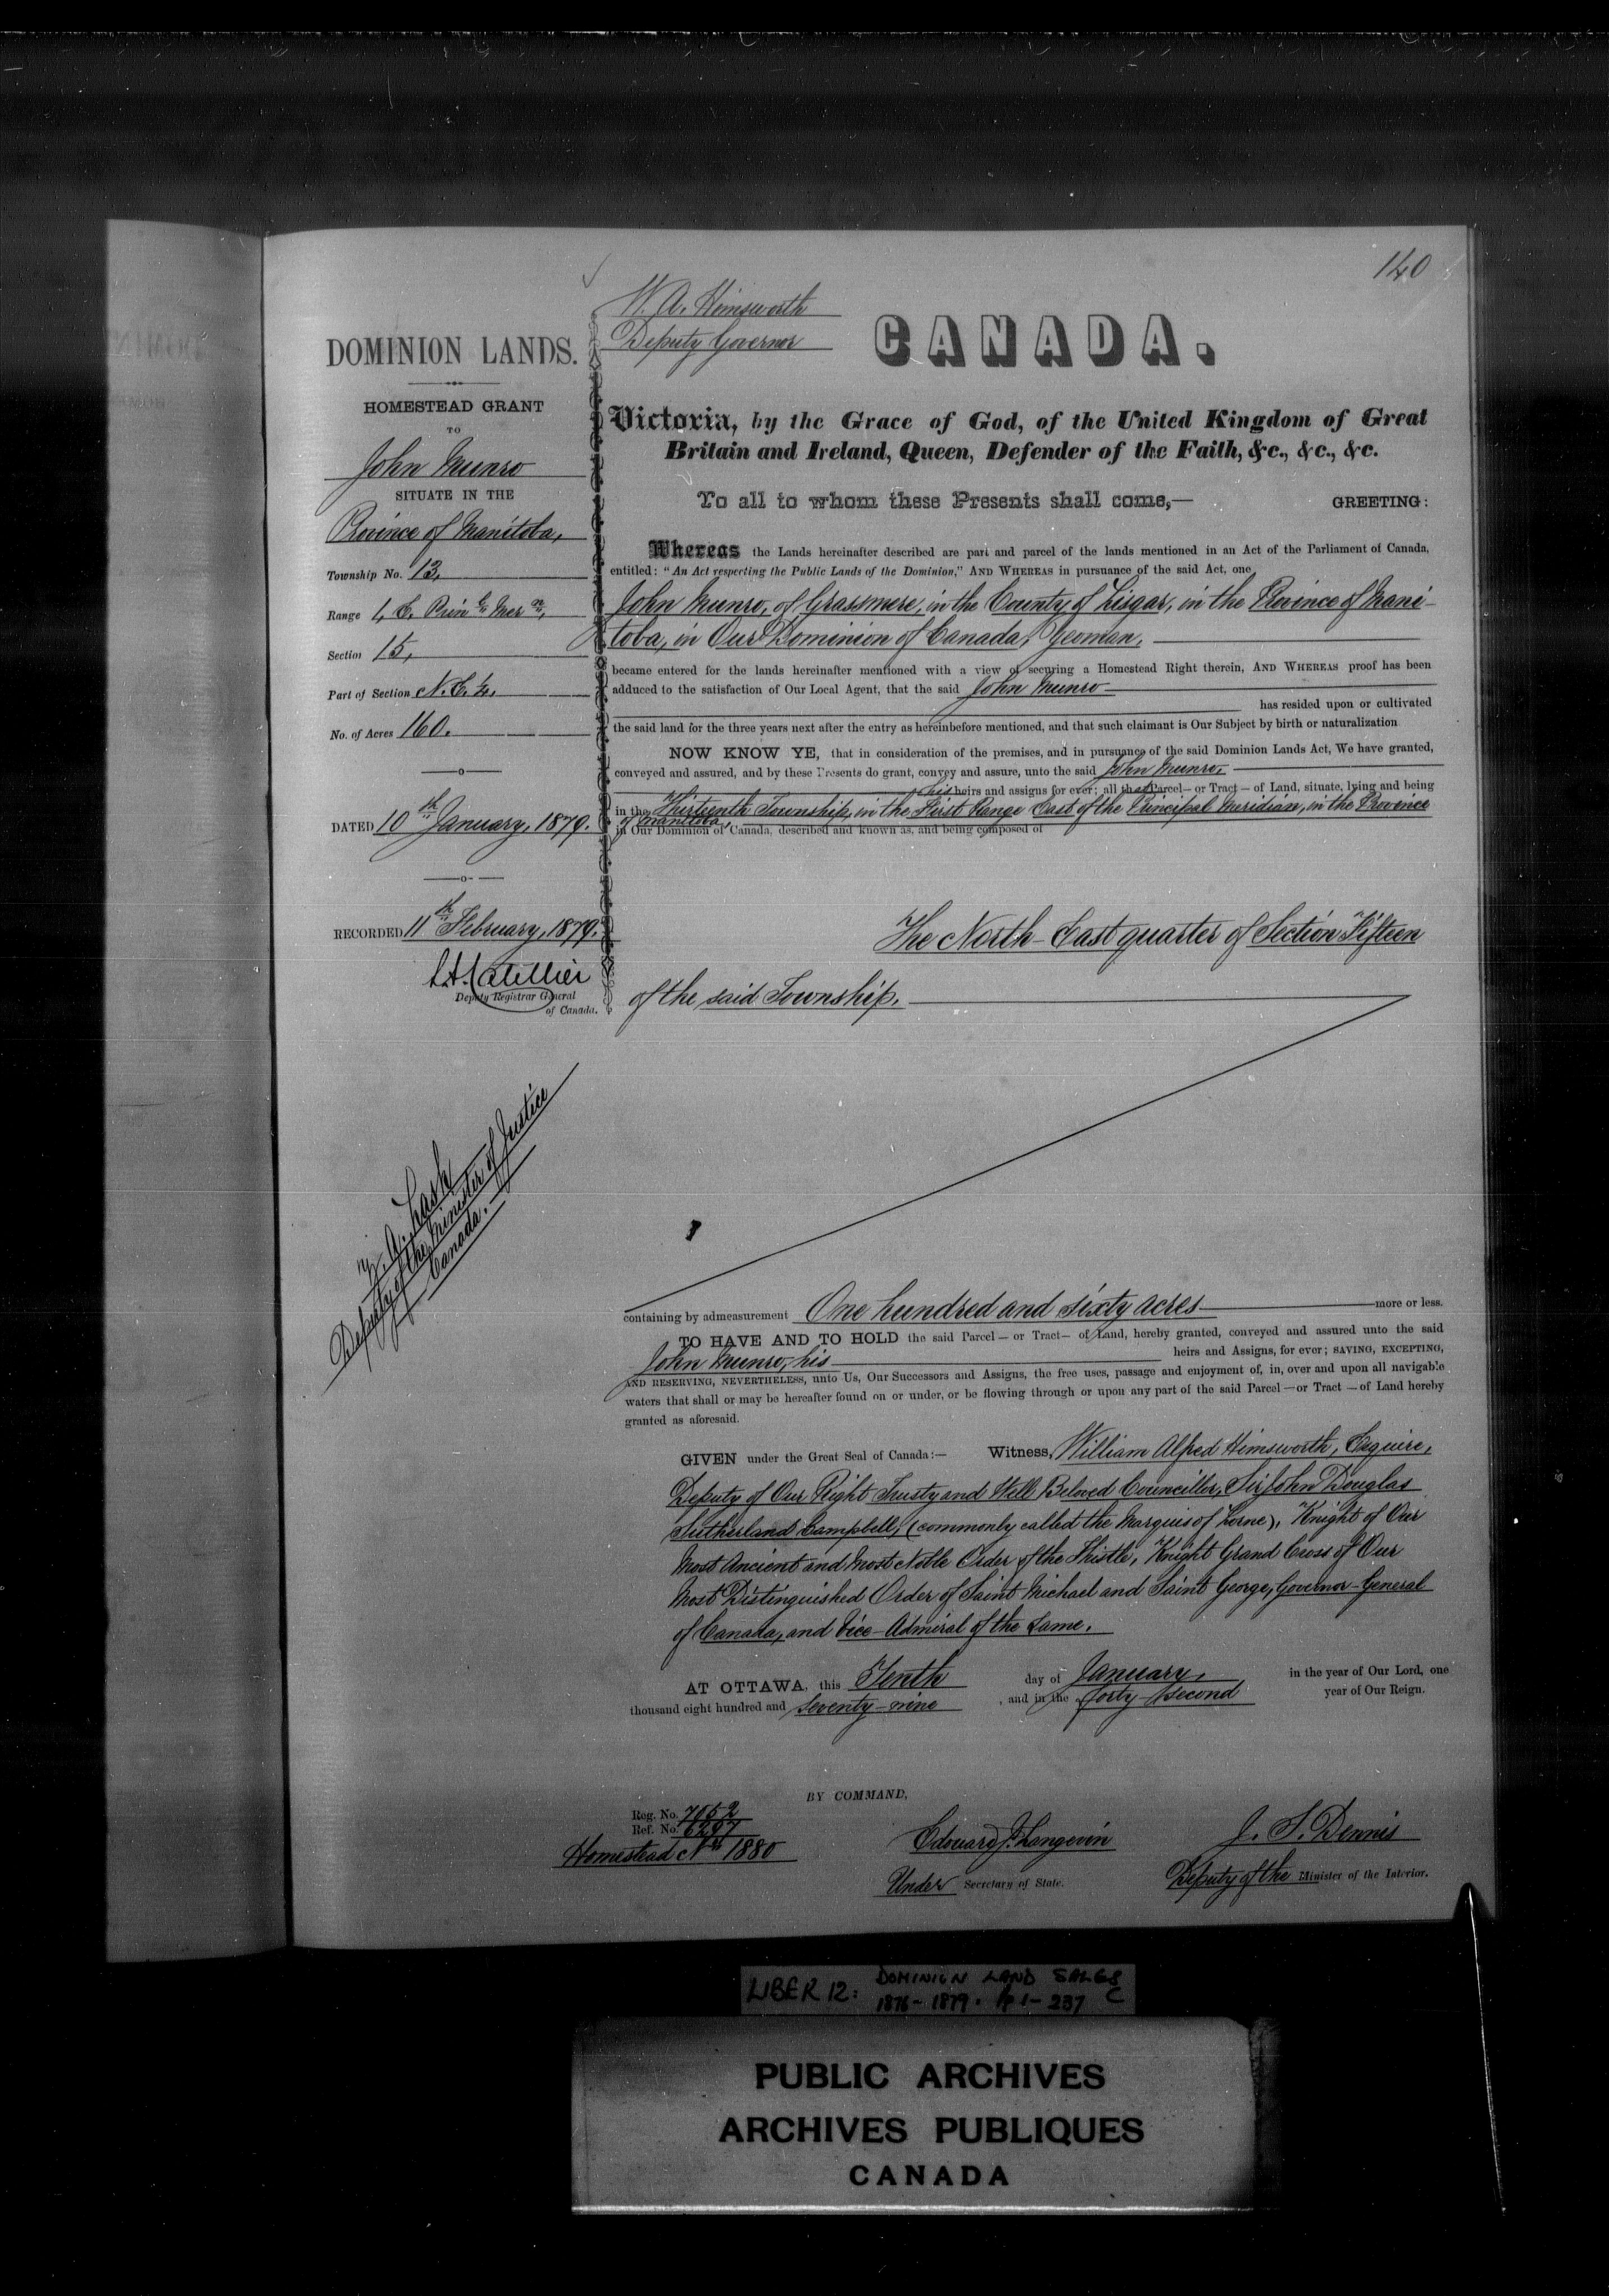 140
W. A. Himsworth
Deputy Governor
CANADA.
DOMINION LANDS.
HOMESTEAD GRANT
TO
John Munro
SITUATE IN THE
Province of Manitoba,
Township No. 13,
Range 1, E. Prin l. Mer n,
Section 15,
Part of Section N. E. ¼.
No. of Acres 160.
DATED 10th January, 1879.
RECORDED 11th February, 1879.
Deputy Registrar General
of Canada.
Z. A. Lash
Deputy of the Minister of Justice
Canada.
Victoria, by the Grace of God, of the United Kingdom of Great
Britain and Ireland, Queen, Defender of the Faith, &c., &c., &c.
To all to whom these Presents shall come,— GREETING:
Whereas the Lands hereinafter described are part and parcel of the lands mentioned in an Act of the Parliament of Canada,
entitled: "An Act respecting the Public Lands of the Dominion," AND WHEREAS in pursuance of the said Act, one
John Munro, of Grassmere, in the County of Lisgar, in the Province of Mani-
toba, in Our Dominion of Canada, Yeoman,
became entered for the lands hereinafter mentioned with a view of securing a Homestead Right therein, AND WHEREAS proof has been
adduced to the satisfaction of Our Local Agent, that the said John Munro
has resided upon or cultivated
the said land for the three years next after the entry as hereinbefore mentioned, and that such claimant is Our Subject by birth or naturalization
NOW KNOW YE, that in consideration of the premises, and in pursuance of the said Dominion Lands Act, We have granted,
conveyed and assured, and by these Presents do grant, convey and assure, unto the said John Munro,
his heirs and assigns for ever; all that Parcel— or Tract — of Land, situate, lying and being
in the Thirteenth Township, in the First Range East of the Principal Meridian, in the Province
of Manitoba,
in Our Dominion of Canada, described and known as, and being composed of
The North-East quarter of Section Fifteen
of the said Township.
containing by admeasurement One hundred and sixty acres more or less.
TO HAVE AND TO HOLD the said Parcel — or Tract— of Land, hereby granted, conveyed and assured unto the said
John Munro, his heirs and Assigns, for ever; SAVING, EXCEPTING,
AND RESERVING, NEVERTHELESS, unto Us, Our Successors and Assigns, the free uses, passage and enjoyment of, in, over and upon all navigable
waters that shall or may be hereafter found on or under, or be flowing through or upon any part of the said Parcel —or Tract — of Land hereby
granted as aforesaid.
GIVEN under the Great Seal of Canada:— Witness, William Alfred Himsworth, Esquire,
Deputy of Our Right Trusty and Well Beloved Councillor, Sir John Douglas
Sutherland Campbell, (commonly called the Marquis of Lorne), Knight of Our
Most Ancient and Most Noble Order of the Thistle, Knight Grand Cross of Our
Most Distinguished Order of Saint Michael and Saint George, Governor-General
of Canada, and Vice-Admiral of the Same.
AT OTTAWA, this Tenth day of January, in the year of Our Lord, one
thousand eight hundred and seventy-nine, and in the forty-second year of Our Reign.
BY COMMAND,
Reg. No. 7052
Ref. No. 6297
Homestead No 1880
Edouard J. Langevin
Under Secretary of State.
J. S. Dennis
Deputy of the Minister of the Interior.
LIBER 12: DOMINION LAND SALES C
1876-1879. pp 1-237
PUBLIC ARCHIVES
ARCHIVES PUBLIQUES
CANADA